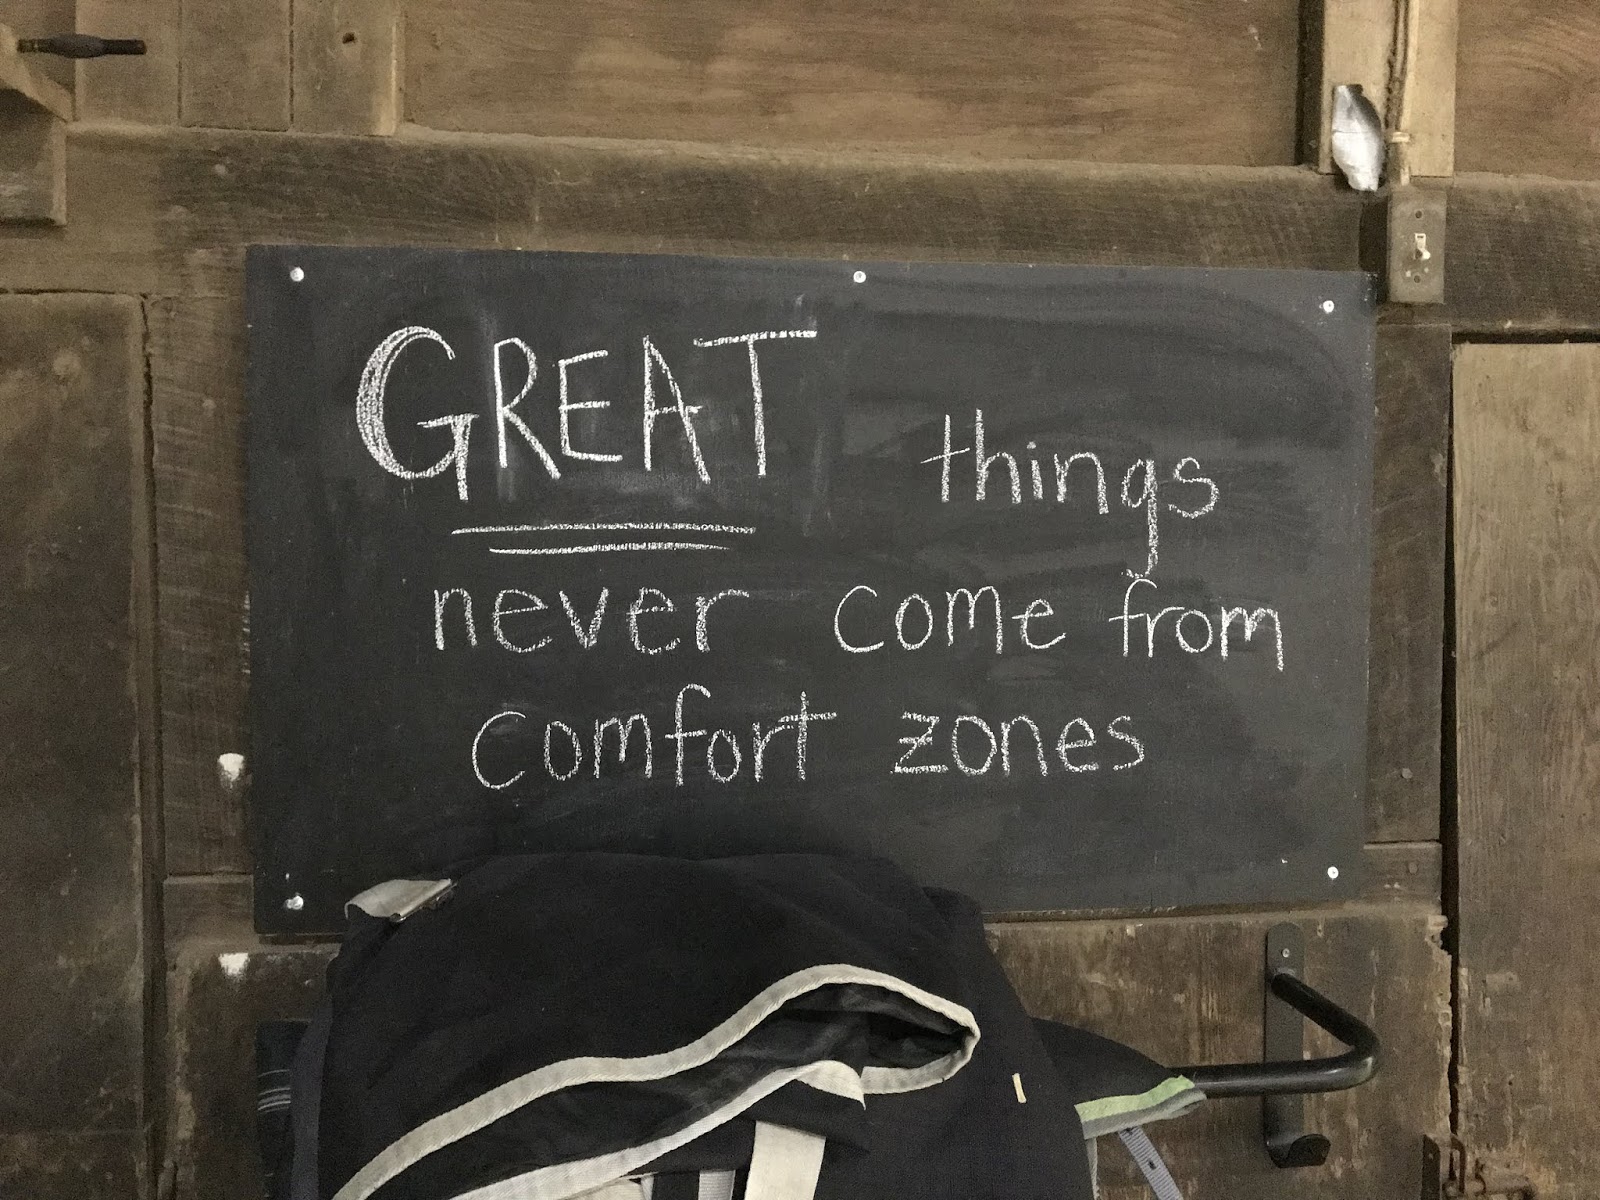 GREAT things
never come from
comfort zones